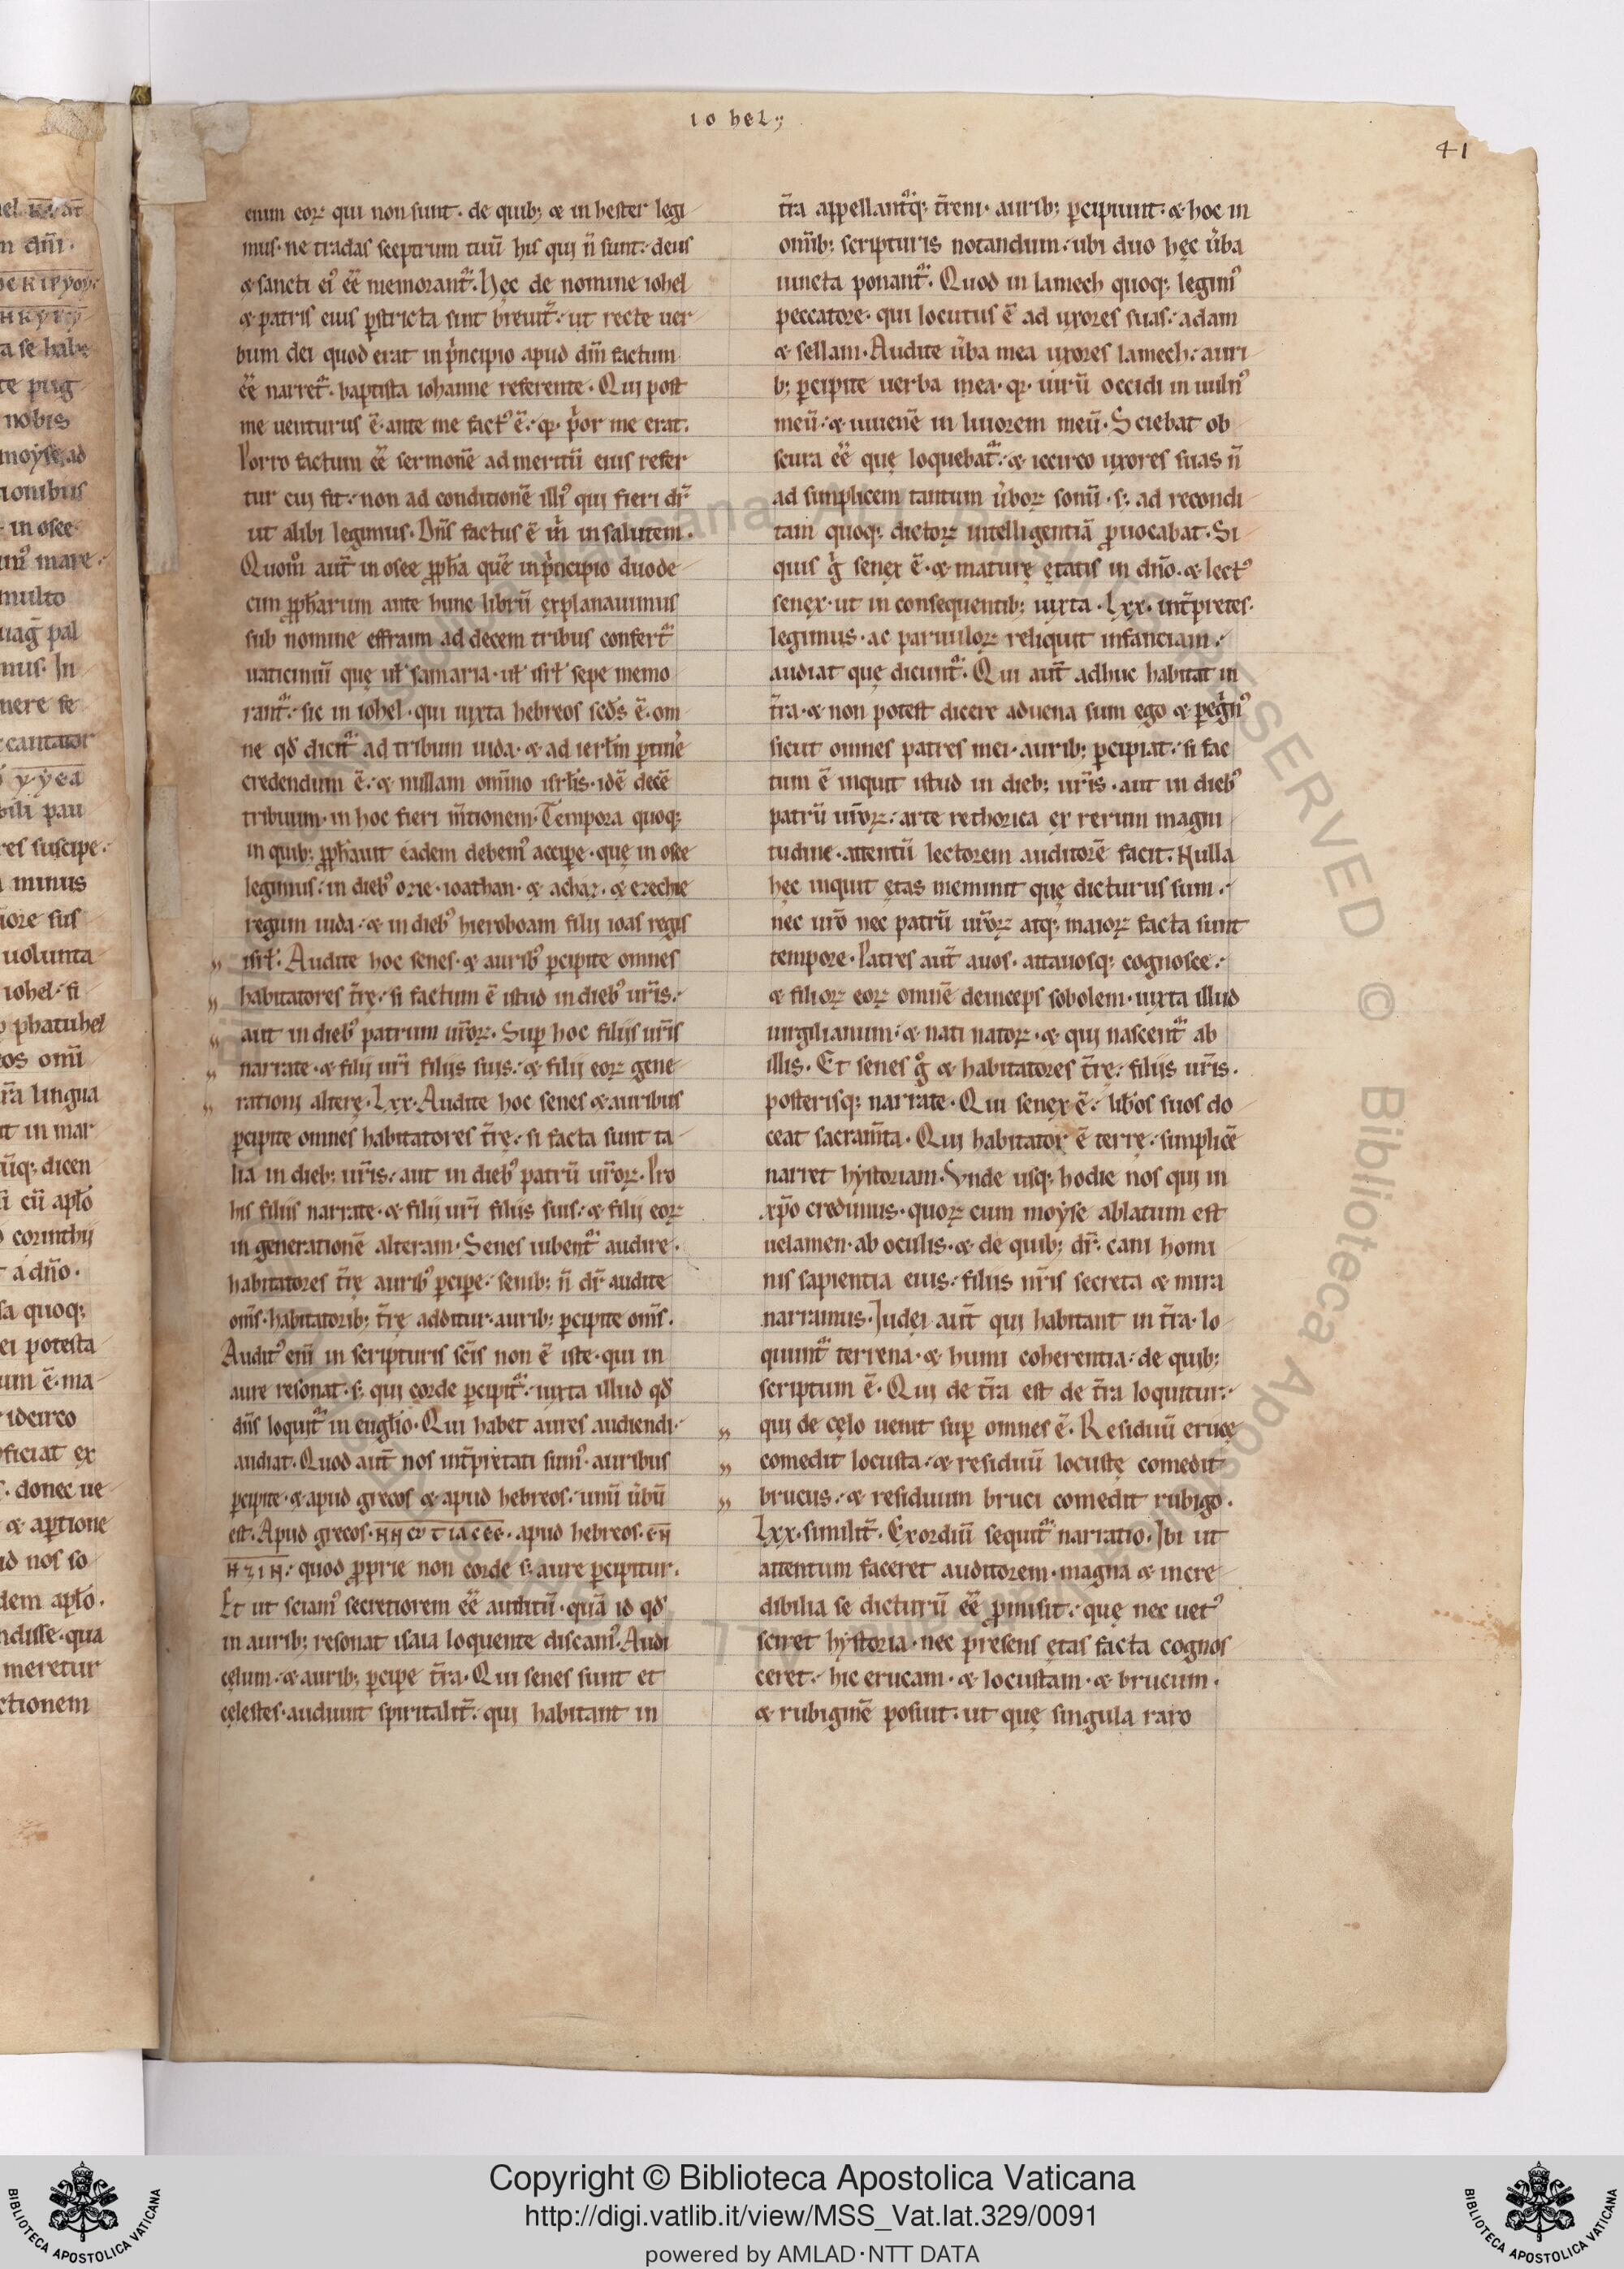 ıo hel ;
41
enim eoꝝ qui non sunt · de quib; & in hester legi
mus · ne tradas sceptrum tuū his qui n̄ sunt : deus
& sancti ei᾽ ēē memorant᷑ . Hęc de nomine iohel
& patris eius p̄stricta sint breuit᷑ : ut recte uer
bum dei quod erat in pͥncipio apud dm̄ factum
ēē narret᷑ · baptista iohanne referente . Qui post
me uenturus ē · ante me fact᾽ ē : qꝛ pͥor me erat .
Porro factum ēē sermonē ad meritū eius refer
tur cui fit : non ad conditionē illi᾽ qui fieri dr̄
ut alibi legimus . Dn̄s factus ē m̊ in salutem .
Quom̊ aut̄ in osee ꝓph̄a quē in pͥncipio duode
cim ꝓph̄arum ante hunc librū explanauimus
sub nomine effraim ad decem tribus confert᷑
uaticiniū quę ul̄ samaria · ul̄ isrl̄ sepe memo
rant᷑ : sic in iohel · qui iuxta hebreos scd̄s ē · om
ne qd̄ dicit᷑ ad tribum iuda · & ad ierl̄m ꝑtinē
credendum ē : & nullam omīno isrl̄is · idē decē
tribuum · in hoc fieri m̄tionem . Tempora quoq;
in quib; ꝓph̄auit eadem debem᾽ accipe · quę in osee
legimus : in dieb᾽ ozie · ioathan · & achaz · & ezechie
regum iuda : & in dieb᾽ hieroboam filii ioas regis
„ isrl̄ . Audite hoc senes · & aurib᾽ ꝑcipite omnes
„ habitatores t̄rę : si factum ē istud in dieb᾽ ur̄is :
„ aut in dieb᾽ patrum ur̄oꝝ . Suꝑ hoc filiis ur̄is
„ narrate · & filij ur̄i filiis suis : & filij eoꝝ gene
„ rationi alterę . Lxx . Audite hoc senes & auribus
ꝑcipite omnes habitatores t̄rę : si facta sunt ta
lia in dieb; ur̄is : aut in dieb᾽ patrū ur̄oꝝ . Pro
his filiis narrate · & filij ur̄i filiis suis · & filij eoꝝ
in generationē alteram . Senes iubent᷑ audire .
habitatores t̄rę aurib᾽ ꝑcipe : senib; n̄ dr̄ audite
om̄s · habitatorib; t̄rę additur · aurib; ꝑcipite om̄s .
Audit᾽ eni̅ in scripturis sc̄is non ē iste · qui in
aure resonat · s; qui corde ꝑcipit᷑ : iuxta illud qd̄
dn̄s loquit᷑ in eugl̄io . Qui habet aures audiendi .
audiat . Quod aut̄ nos int̄pretati sum᾽ · auribus
ꝑcipite · & apud grecos & apud hebreos : unū ůbū
est . Apud grecos · · apud hebreos ·
· quod ꝓprie non corde s; aure ꝑcipitur .
Et ut sciam᾽ secretiorem ēē auditū · quā id qd̄
in aurib; resonat isaia loquente discam᾽ . Audi
cęlum · & aurib; ꝑcipe t̄ra . Qui senes sunt et
cęlestes · audiunt spiritalit᷑ : qui habitant in
t̄ra appellant᷑q; t̄reni · aurib; ꝑcipiunt : & hoc in
omīb; scripturis notandum : ubi duo hęc ůba
iuncta ponant᷑ . Quod in lamech quoq; legim᾽
peccatore · qui locutus ē ad uxores suas : adam
& sellam . Audite ůba mea uxores lamech : auri
b; ꝑcipite uerba mea · qꝛ uirū occidi in uuln᾽
meū : & iuuenē in liuorem meū . Sciebat ob
scura ēē quę loquebat᷑ : & iccirco uxores suas n̄
ad simplicem tantum ůboꝝ sonū · s; ad recondi
tam quoq; dictoꝝ intelligentiā ꝓuocabat . Si
quis g̊ senex ē · & maturę ętatis in dn̄o · & lect᾽
senex · ut in consequentib; iuxta · Lxx · int̄pretes ·
legimus · ac paruuloꝝ reliquit infanciam :
audiat quę dicunt᷑ . Qui aut̄ adhuc habitat in
t̄ra · & non potest dicere aduena sum ego & ꝑegͥn᾽
sicut omnes patres mei · aurib; ꝑcipiat : si fac
tum ē inquit istud in dieb; ur̄is · aut in dieb᾽
patrū ur̄oꝝ : arte rethorica ex rerum magni
tudine · attentū lectorem auditorē facit . Nulla
hęc inquit ętas meminit quę dicturus sum :
nec ur̄o nec patrū ur̄oꝝ atq; maioꝝ facta sunt
tempore . Patres aut̄ auos · attauosq; cognosce :
& filioꝝ eoꝝ omnē deinceps sobolem · iuxta illud
uirgilianum : & nati natoꝝ · & qui nascent᷑ ab
illis . Et senes g̊ & habitatores t̄rę : filiis ur̄is .
posterisq; narrate . Qui senex ē : lib̄os suos do
ceat sacram̄ta . Qui habitator ē terrę : simplicē
narret hystoriam . Vnde usq; hodie nos qui in
xp̄o credimus · quoꝝ cum moyse ablatum est
uelamen · ab oculis · & de quib; dr̄ : cani homi
nis sapientia eius : filiis nr̄is secreta & mira
narramus . Iudei aut̄ qui habitant in t̄ra · lo
quunt᷑ terrena · & humi coherentia : de quib;
scriptum ē . Qui de t̄ra est de t̄ra loquitur :
„ qui de cęlo uenit suꝑ omnes ē . Residuū erucę
„ comedit locusta : & residuū locustę comedit
„ brucus : & residuum bruci comedit rubigo .
Lxx . similit᷑ . Exordiū sequit᷑ narratio . Ibi ut
attentum faceret auditorem · magna & incre
dibilia se dicturū ēē ꝓmisit : quę nec uet᾽
sciret hystoria · nec presens ętas facta cognos
ceret : hic erucam · & locustam · & brucum .
& rubiginē posuit : ut quę singula raro
Copyright © Biblioteca Apostolica Vaticana
http://digi.vatlib.it/view/MSS_Vat.lat.329/0091
powered by AMLAD·NTT DATA
BIBLIOTECA APOSTOLICA VATICANA
BIBLIOTECA APOSTOLICA VATICANA